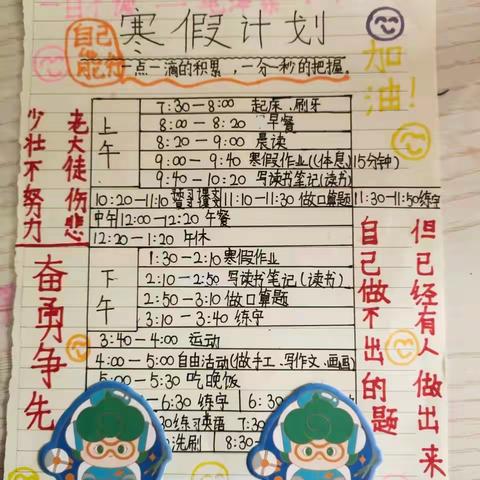 寒假计划
自己能行
一点一滴的积累，一分一秒的把握.
加油!
少壮不努力
老大徒伤悲
奋勇争先
上午
7:30—8:00 起床、刷牙
8:00—8:20 早餐
8:20—9:00 晨读
9:00—9:40 寒假作业((休息)15分钟)
9:40—10:20 写读书笔记(读书)
10:20—11:10
11:10—11:30 做口算题
11:30—11:50练字
中午12:00—12:20 午餐
12:20—1:20 午休
下午
1:30—2:10 寒假作业
2:10—2:50 写读书笔记(读书)
2:50—3:10 做口算题
3:10—3:40 练字
3:40—4:00 运动
4:00—5:00 自由活动(做手工、写作文、画画)
5:00—5:30 吃晚饭
6:30 练字
6:30
30练习英语
7:30
洗刷
8:30
但已经有人做出来
自己做不出的题